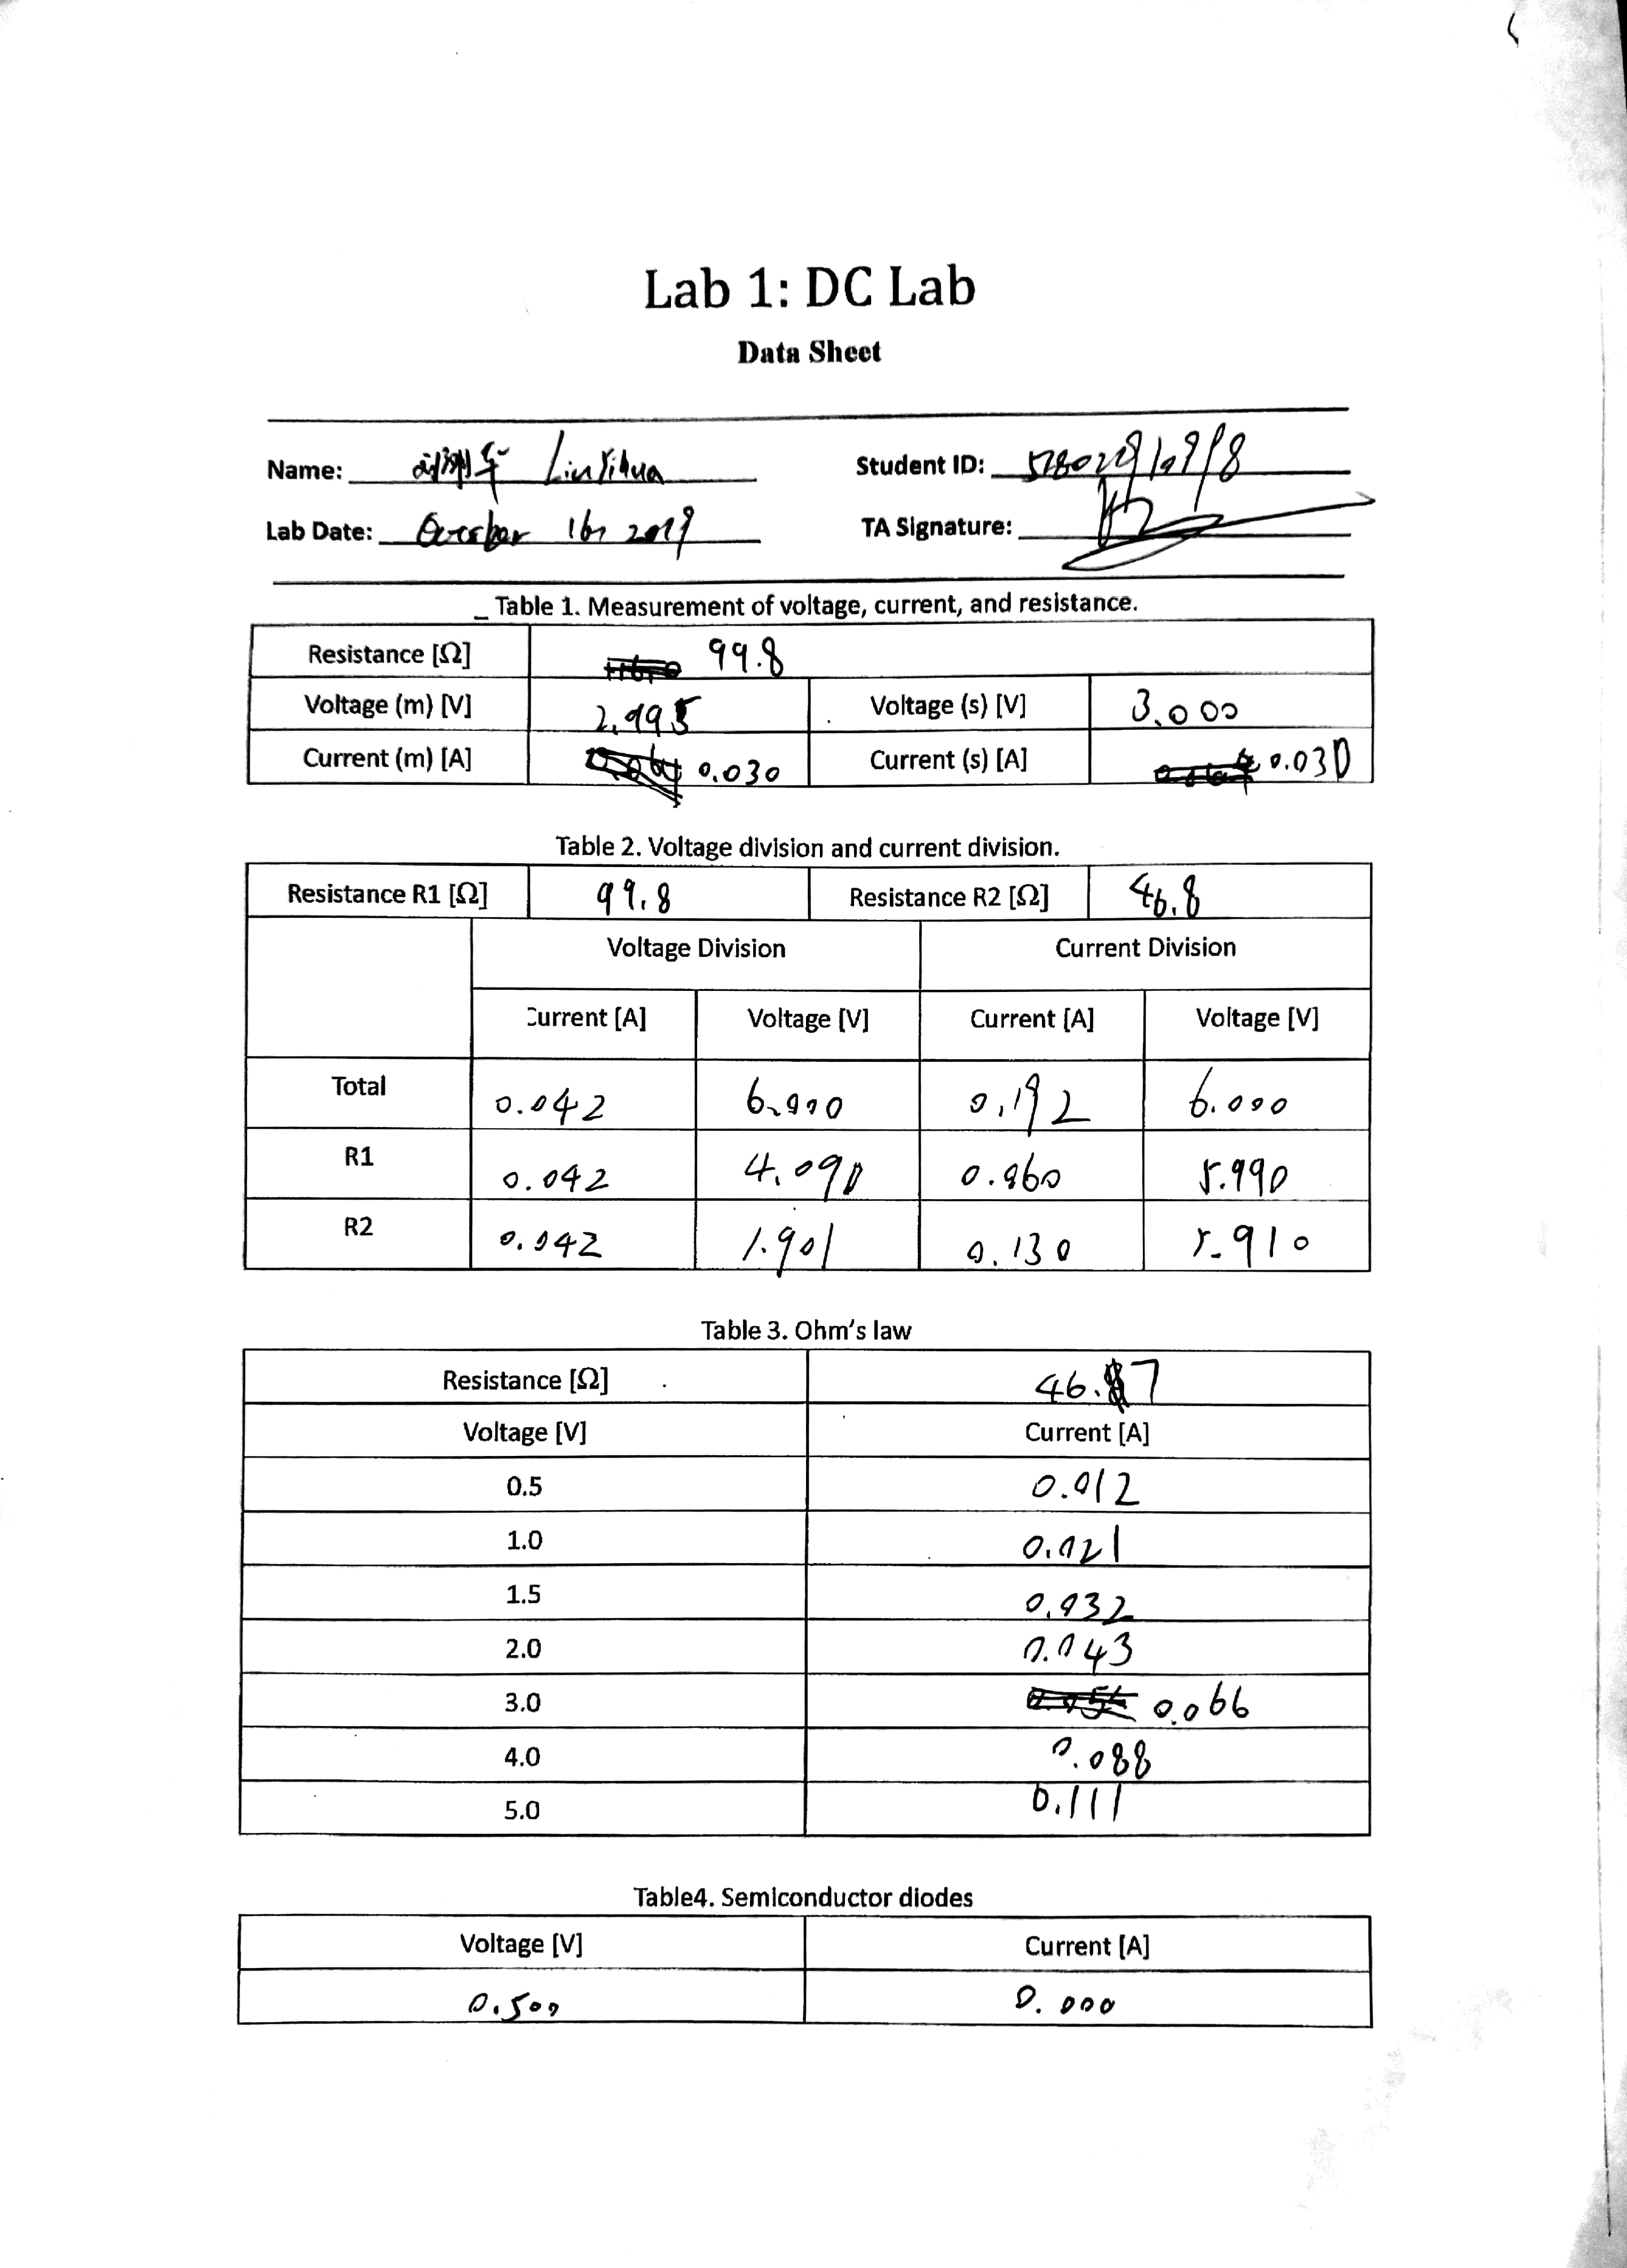 Lab 1: DC Lab
Data Sheet
Name:
Student ID:
Lab Date: October 16, 2019
TA Signature:
Table 1. Measurement of voltage, current, and resistance.
Resistance [Ω] 99.8
Voltage (m) [V] 2.995 Voltage (s) [V] 3.000
Current (m) [A] 0.030 Current (s) [A] 0.030
Table 2. Voltage division and current division.
Resistance R1 [Ω] 99.8 Resistance R2 [Ω] 46.8
Voltage Division Current Division
Current [A] Voltage [V] Current [A] Voltage [V]
Total 0.042 6.000 0.192 6.000
R1 0.042 4.090 0.060 5.990
R2 0.042 1.901 0.130 5.910
Table 3. Ohm's law
Resistance [Ω] 46.7
Voltage [V] Current [A]
0.5 0.012
1.0 0.021
1.5 0.032
2.0 0.043
3.0 0.066
4.0 0.088
5.0 0.111
Table4. Semiconductor diodes
Voltage [V] Current [A]
0.500 0.000